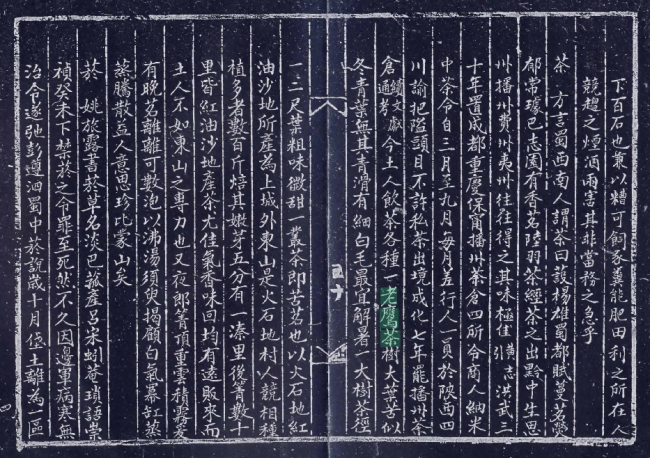 下百石也兼以糟可飼豕糞能肥田利之所在人
競趨之煙酒兩害其非當務之急乎
茶 方言蜀西南人謂茶曰蔎楊雄蜀都賦蔓茗熒
郁常璩巴志園有香茗陸羽茶經茶之出黔中生思
州播州費州夷州往往得之其味極佳黃志引洪武三
十年置成都重慶保甯播州茶倉四所令商人納米
中茶令自三月至九月每月差行人一員於陝西四
川諭把隘頭目不許私茶出境成化七年罷播州茶
倉續文獻通考今土人飲茶各種一老鷹茶樹大葉苦似
冬青葉無其青滑有細白毛最宜解暑一大樹茶徑
一二尺葉粗味微甜一叢茶即古茗也以火石地紅
油沙地所產為上城外東山是火石地村人競相種
植多者數百斤焙其嫩芽五分有一溱里後箐數十
里皆紅油沙地產茶尤佳氣香味回均有遠販來而
土人不如東山之專力也又夜郎箐頂重雲積霧爰
有晚茗離離可數泡以沸湯須臾揭顧白氣冪缸蒸
蒸騰散益人意思珍比蒙山矣
菸 姚旅露書菸草名淡巴菰產呂宋蚓菴瑣語崇
禎癸未下禁菸之令罪至死然不久因邊軍病寒無
治令遂弛彭遵泗蜀中菸說歲十月 土離為一區